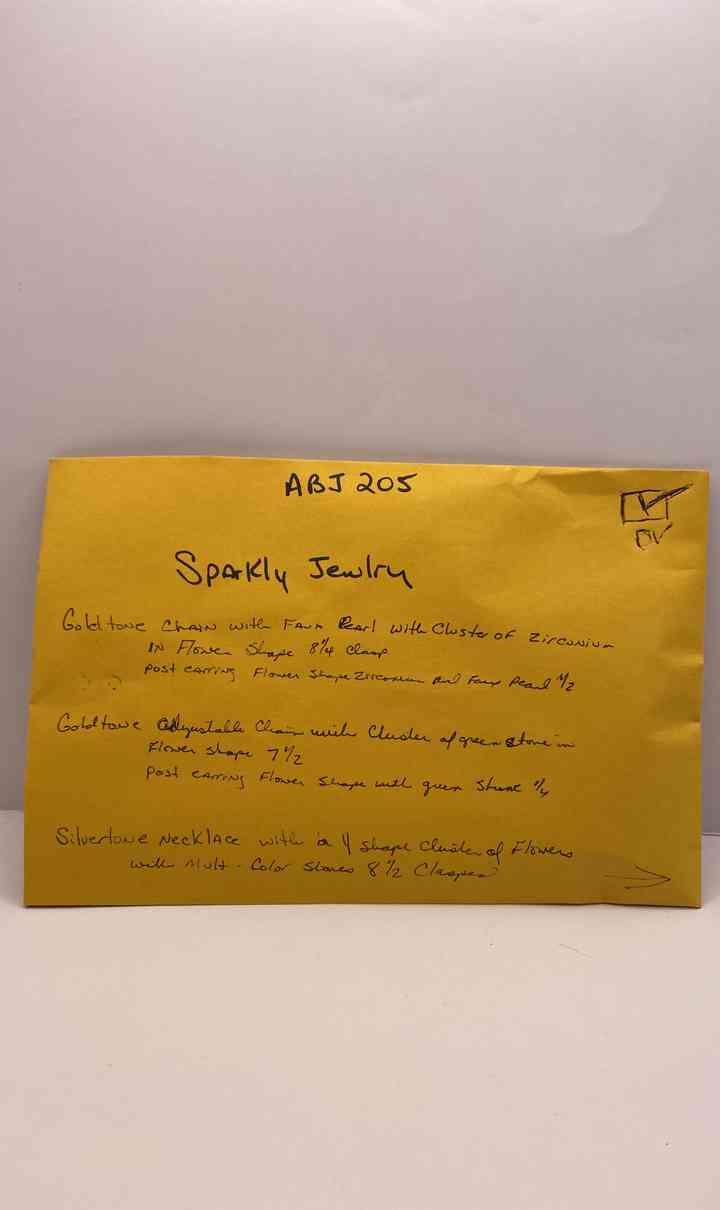 ABJ 205
OV
Sparkly Jewlry
Goldtone Chain with Faux Pearl with Cluster of Zirconium
IN Flower Shape 8 1/4 Clasp
Post earring Flower Shape Zirconium and Faux Pearl 1/2
Goldtone Adjustable Chain with Cluster of green stone in
Flower shape 7 1/2
Post earring Flower Shape with green Stone 1/4
Silvertone Necklace with a Y shape Cluster of Flowers
with Mult-Color Stones 8 1/2